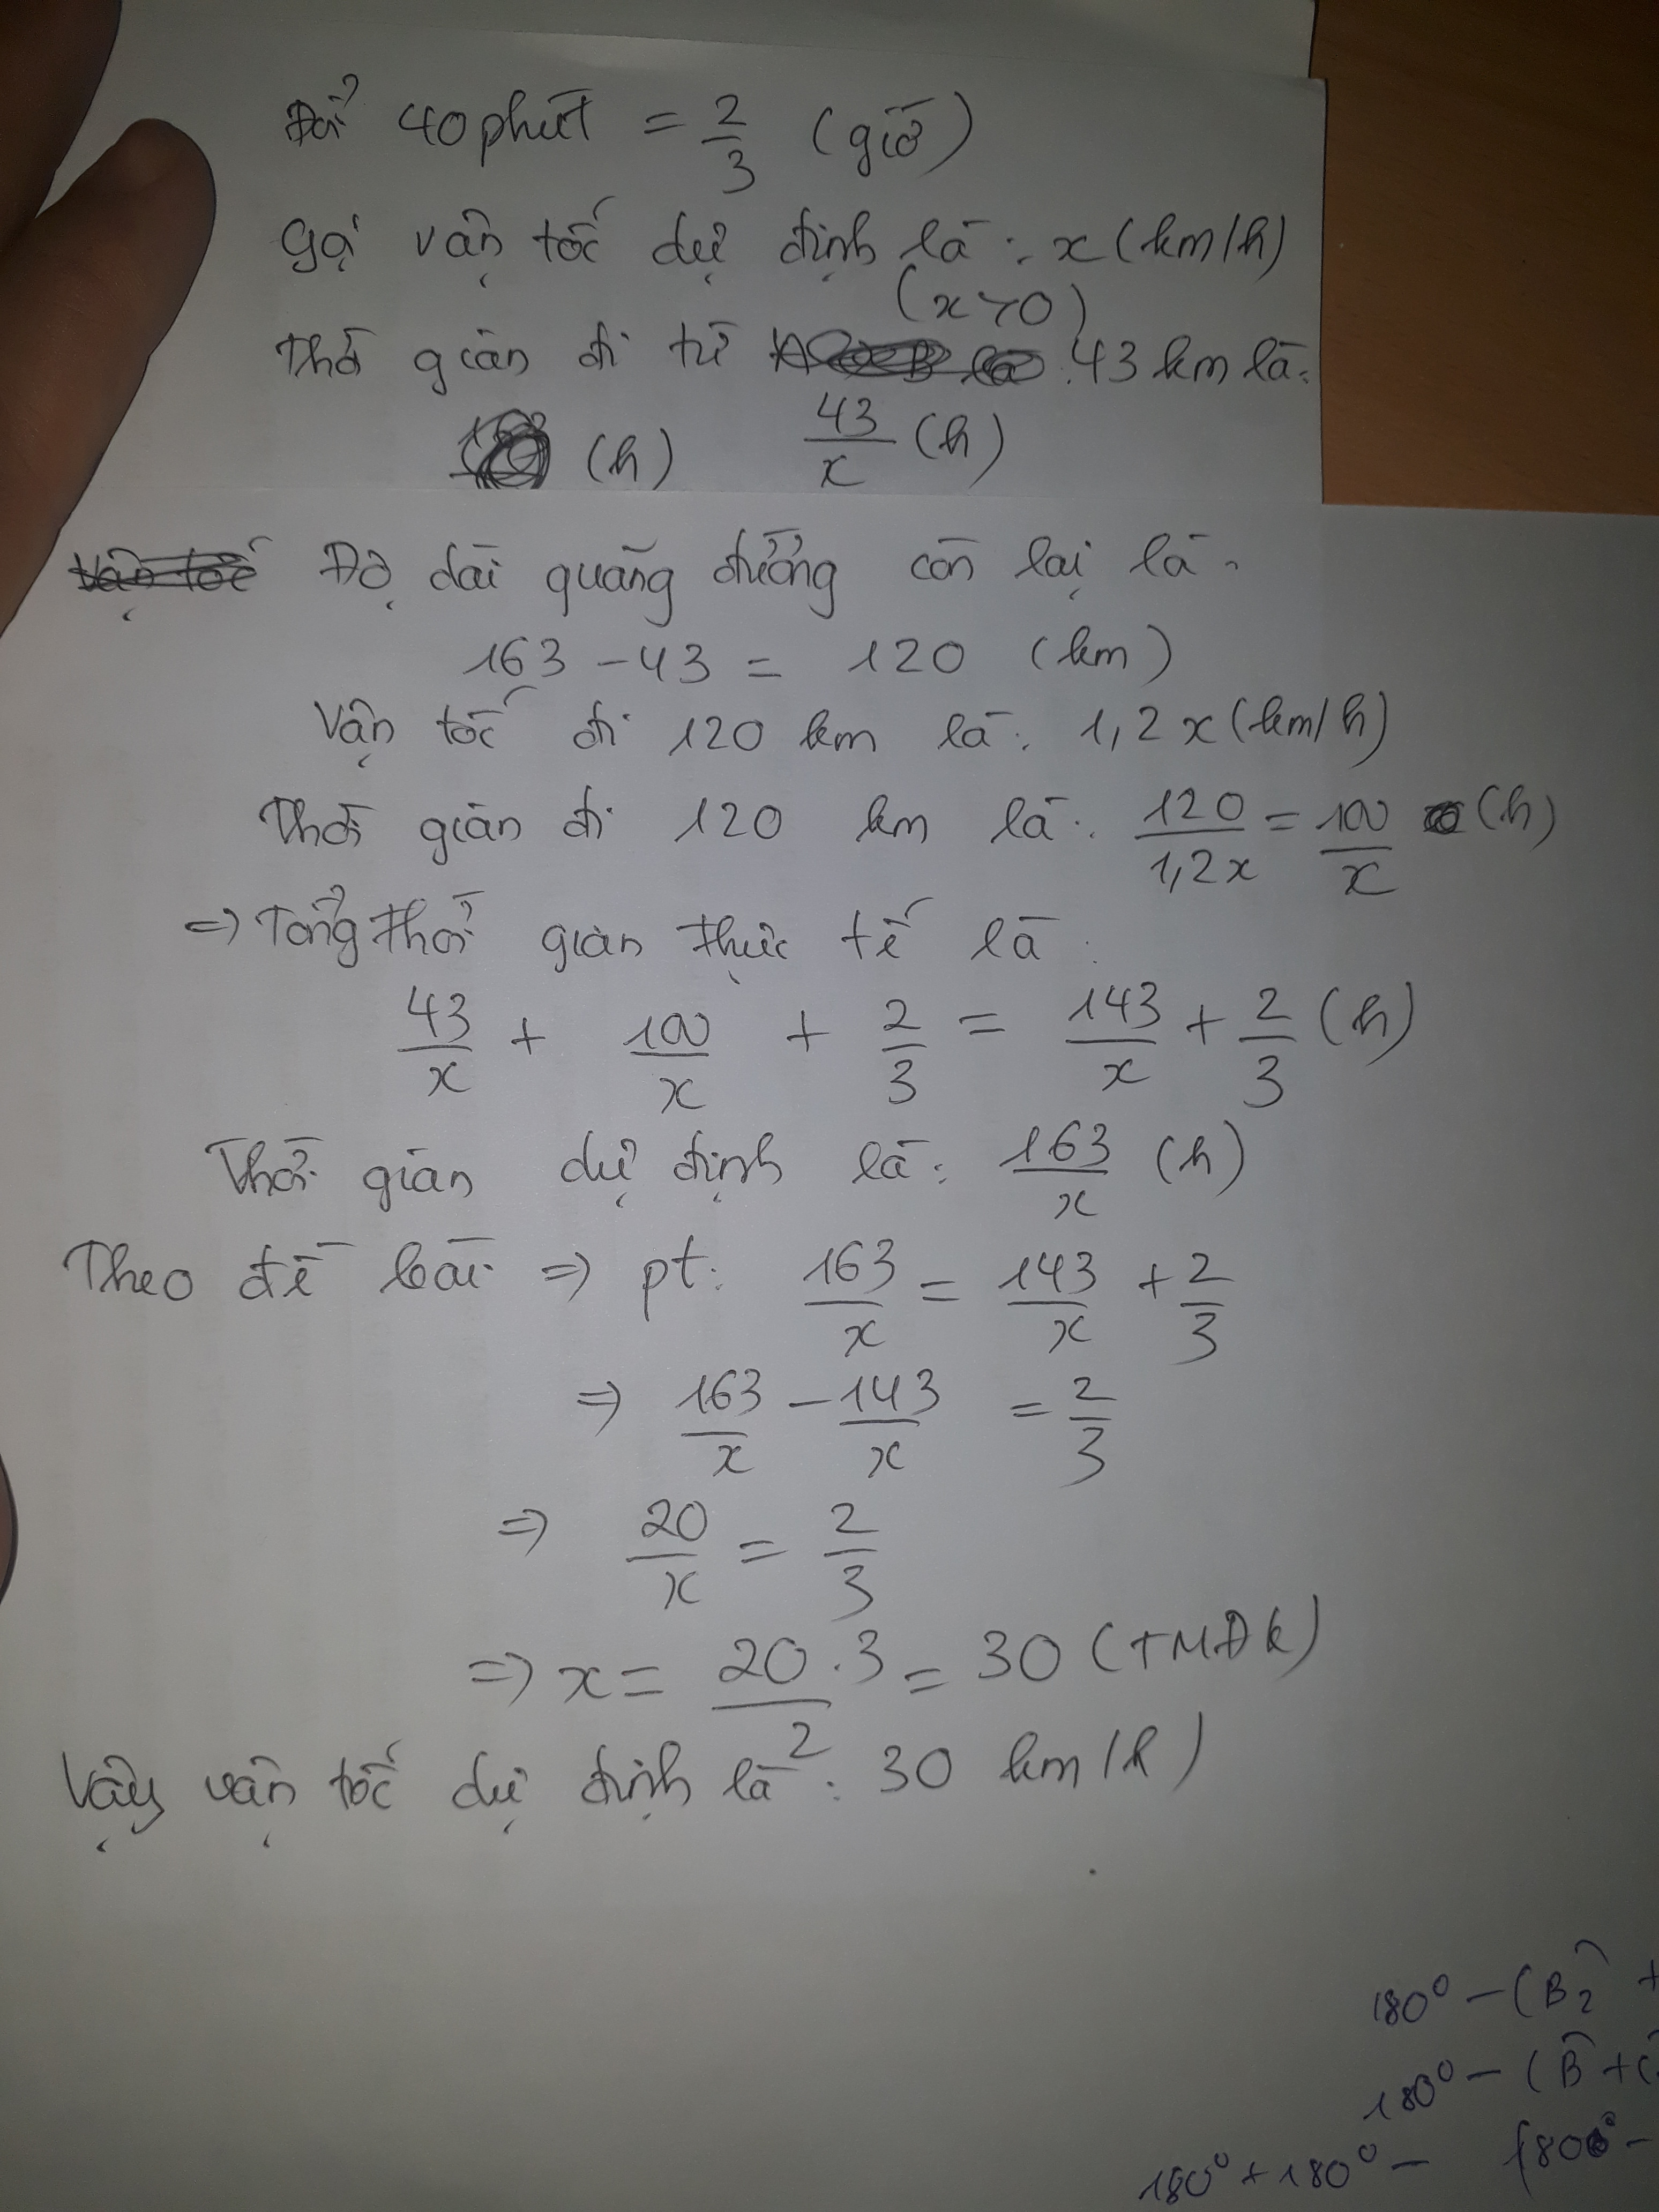 Đổi 40 phút = 2/3 (giờ)
Gọi vận tốc dự định là: x (km/h)
(x > 0)
Thời gian đi từ 43 km là:
(h) 43/x (h)
Vận tốc Độ dài quãng đường còn lại là:
163 - 43 = 120 (km)
Vận tốc đi 120 km là: 1,2x (km/h)
Thời gian đi 120 km là: 120/1,2x = 100/x (h)
=> Tổng thời gian thực tế là:
43/x + 100/x + 2/3 = 143/x + 2/3 (h)
Thời gian dự định là: 163/x (h)
Theo đề bài => pt: 163/x = 143/x + 2/3
=> 163/x - 143/x = 2/3
=> 20/x = 2/3
=> x = 20.3/2 = 30 (TMĐK)
Vậy vận tốc dự định là: 30 km/h)
180° - (B̂2 +
180° - (B̂ + Ĉ
180° + 180° - 180° -